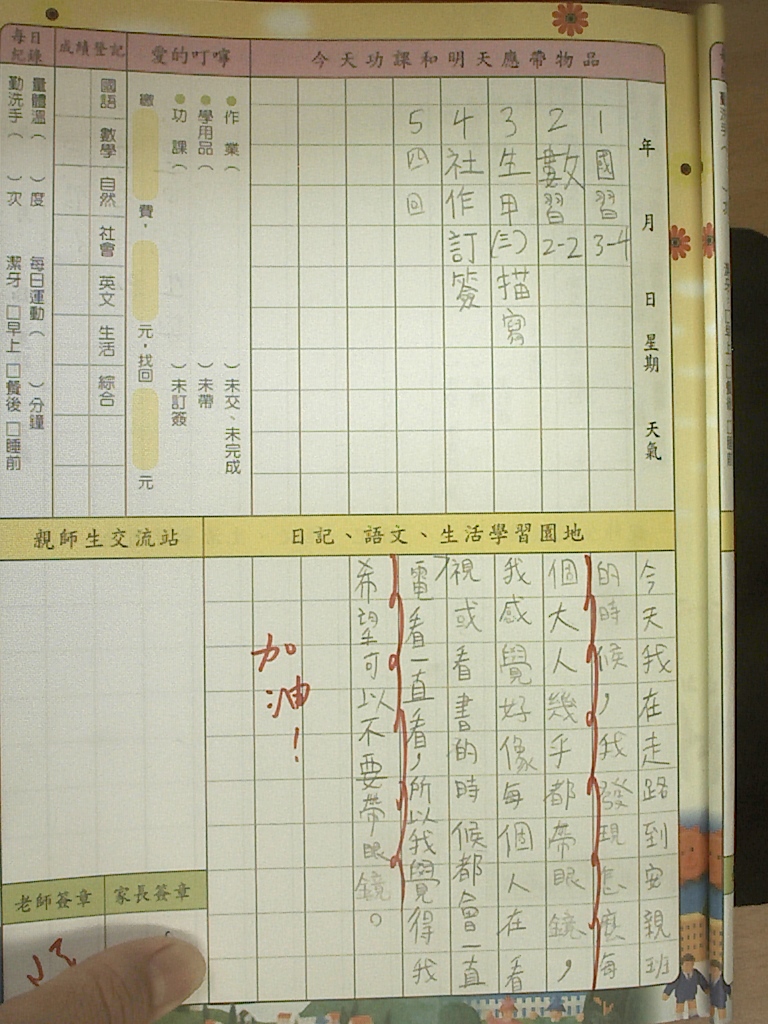 今天功課和明天應帶物品
年 月 日 星期 天氣
1國習3-4
2數習2-2
3生甲(三)描寫
4社作訂簽
5四回
愛的叮嚀
作業（ ）未交、未完成
學用品（ ）未帶
功課（ ）未訂簽
繳 費， 元，找回 元
成績登記
國語 數學 自然 社會 英文 生活 綜合
每日紀錄
量體溫（ ）度 每日運動（ ）分鐘
勤洗手（ ）次 潔牙：□早上 □餐後 □睡前
日記、語文、生活學習園地
今天我在走路到安親班
的時候，我發現怎麼每
個大人幾乎都帶眼鏡，
我感覺好像每個人在看
視或看書的時候都會一直
電看一直看，所以我覺得我
希望可以不要帶眼鏡。
加油！
親師生交流站
家長簽章
老師簽章